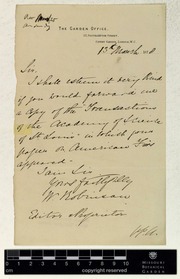 THE GARDEN OFFICE,
37, SOUTHAMPTON STREET,
COVENT GARDEN, LONDON, W.C.
13 March
Sir,
I shall esteem it very kind
if you would forward me
a copy of the Transactions
of the Academy of Science
of St Louis in which your
papers on American Firs
appeared.
I am Sir
Yours faithfully
W Robinson
MISSOURI
BOTANICAL
GARDEN